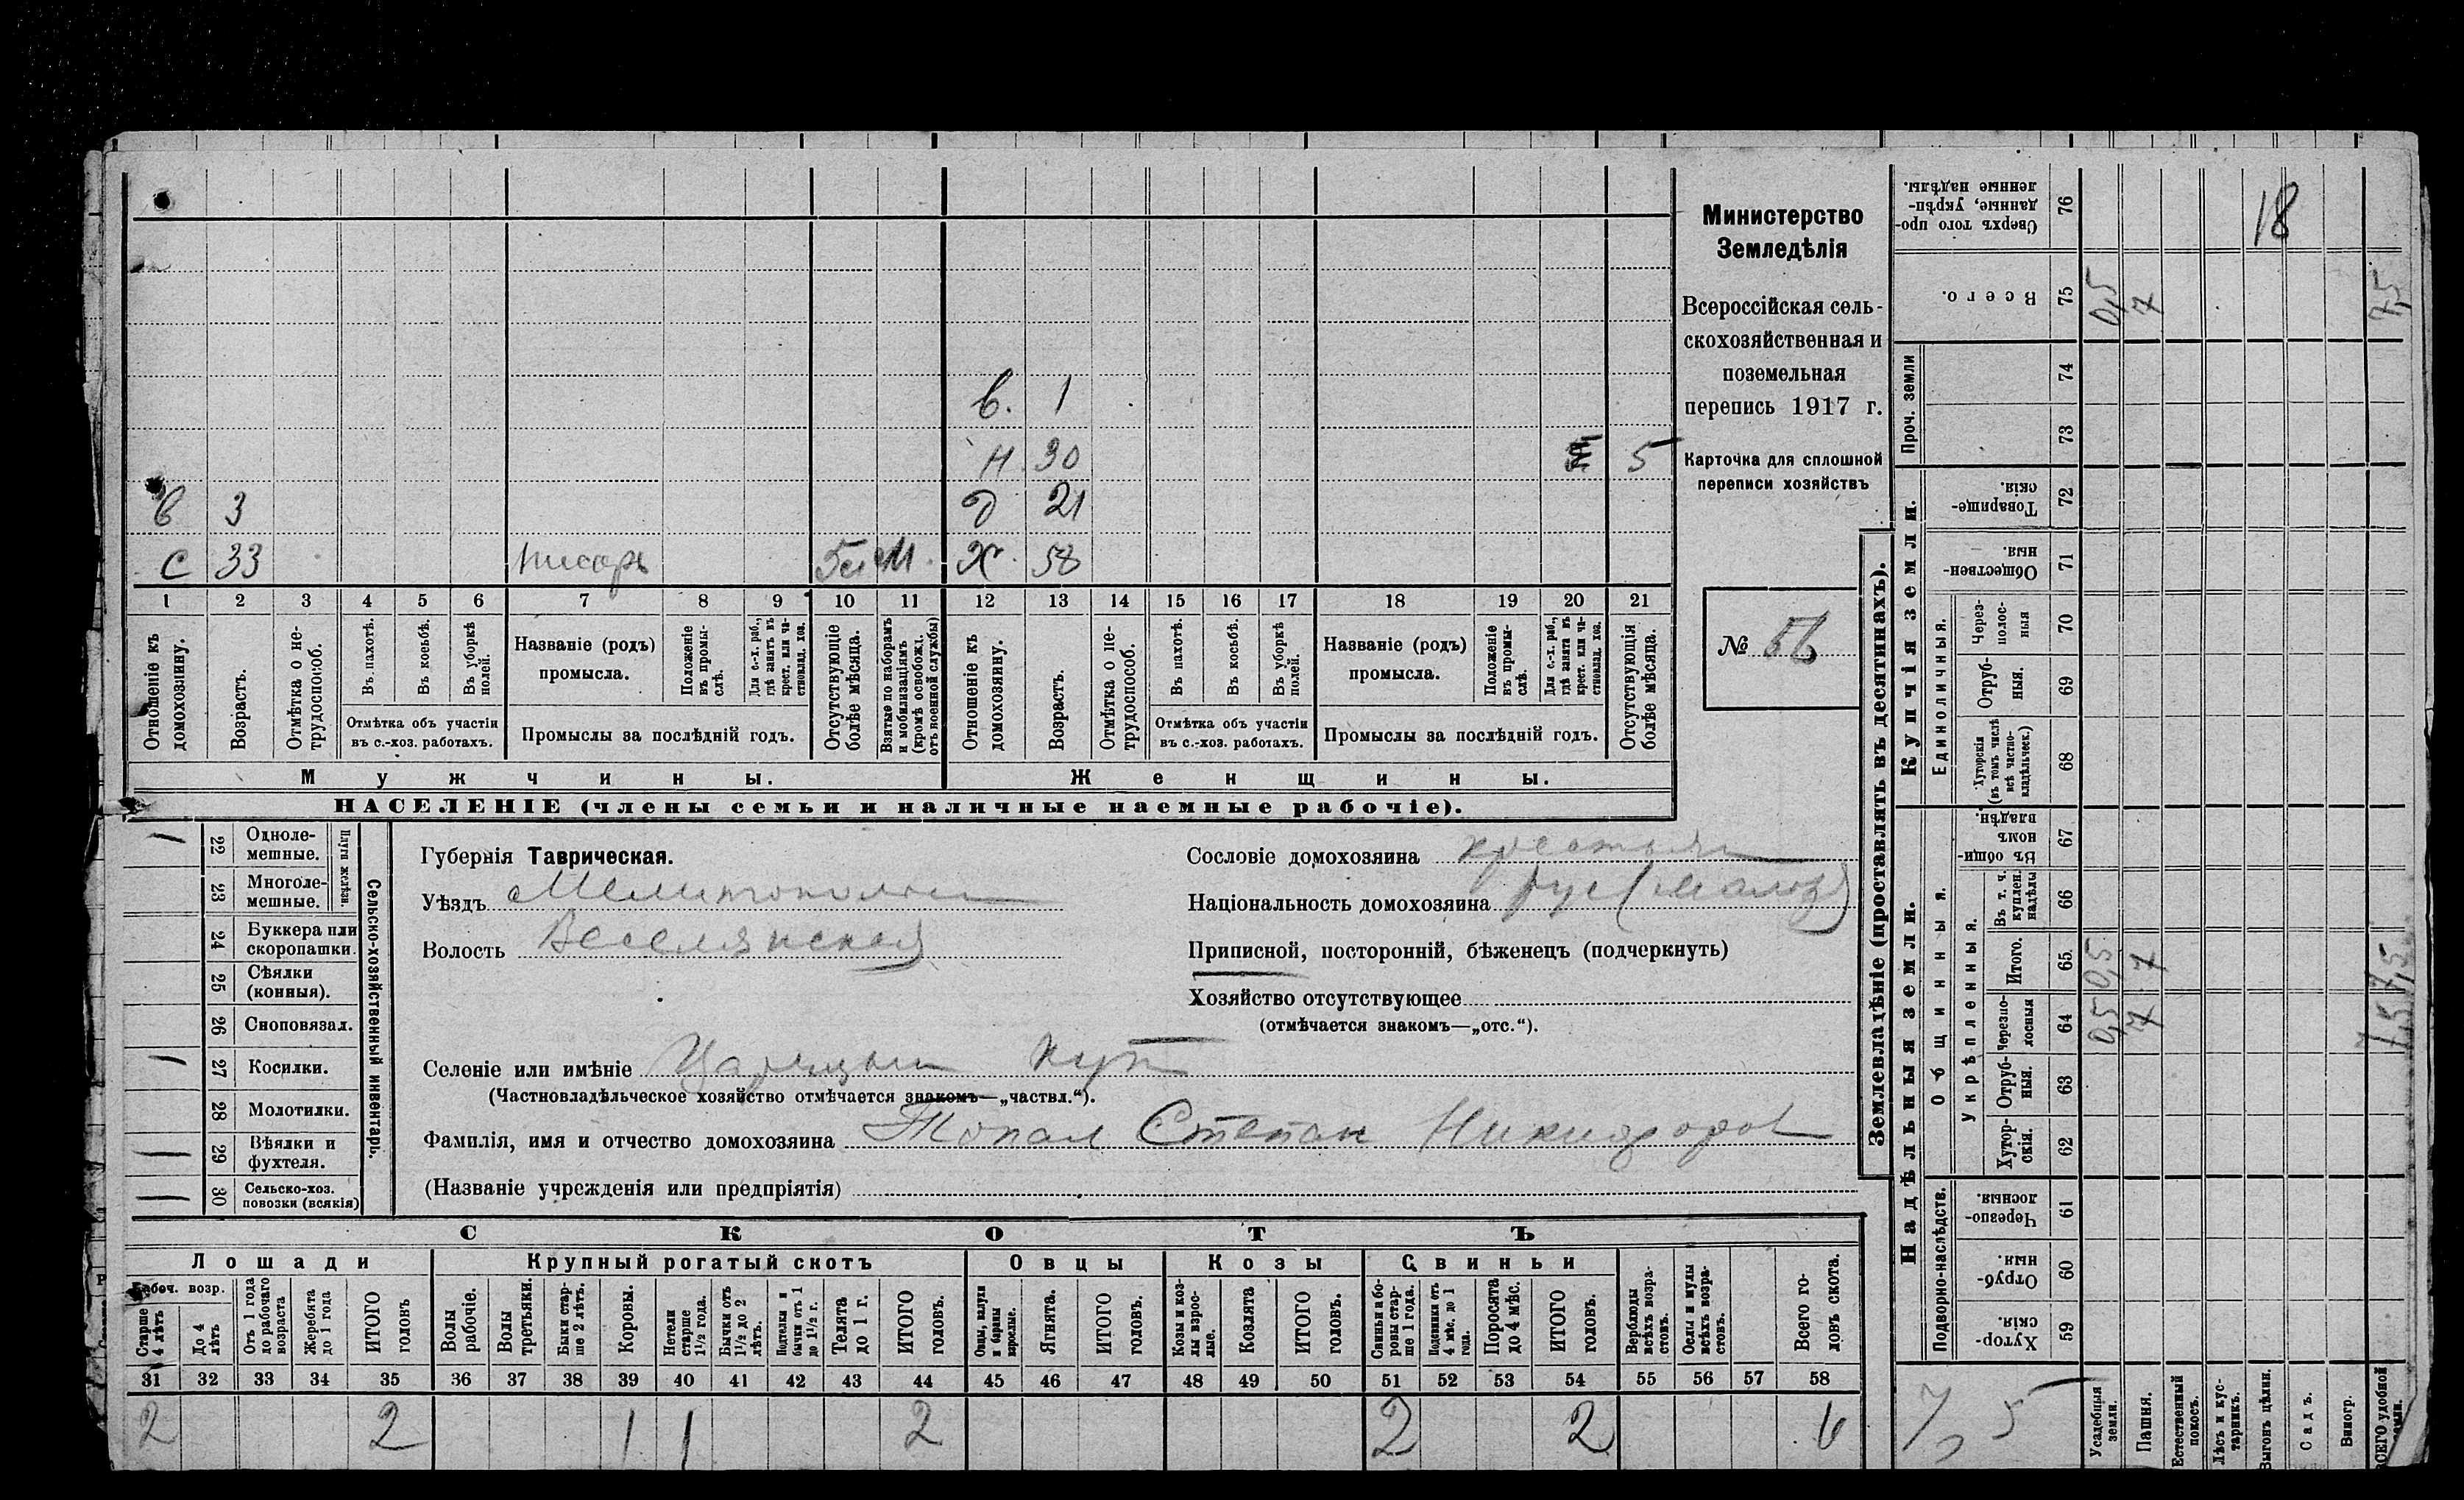 Министерство
Земледѣлія
Всероссійская сель-
скохозяйственная и
поземельная
перепись 1917 г.
Карточка для сплошной
переписи хозяйствъ
№ 56
в. 1
н. 30 5
в 3 д 21
с 33 писарь М. Х. 58
1 2 3 4 5 6 7 8 9 10 11 12 13 14 15 16 17 18 19 20 21
Отношеніе къ домохозяину.
Возрастъ.
Отмѣтка о не-трудоспособ.
Въ пахотѣ.
Въ косьбѣ.
Въ уборкѣ полей.
Отмѣтка объ участіи въ с.-хоз. работахъ.
Названіе (родъ) промысла.
Положеніе въ промы-слѣ.
Для с.-х. раб., гдѣ занятъ въ крест. или ча-стновлад. хоз.
Промыслы за послѣдній годъ.
Отсутствующіе болѣе мѣсяца.
Взятые по наборамъ и мобилизаціямъ (кромѣ освобожд. отъ военной службы)
Отношеніе къ домохозяину.
Возрастъ.
Отмѣтка о не-трудоспособ.
Въ пахотѣ.
Въ косьбѣ.
Въ уборкѣ полей.
Отмѣтка объ участіи въ с.-хоз. работахъ.
Названіе (родъ) промысла.
Положеніе въ промы-слѣ.
Для с.-х. раб., гдѣ занята въ крест. или ча-стновлад. хоз.
Промыслы за послѣдній годъ.
Отсутствующія болѣе мѣсяца.
Мужчины. Женщины.
НАСЕЛЕНІЕ (члены семьи и наличные наемные рабочіе).
Сельско-хозяйственный инвентарь.
Плуги желѣзн.
22 Одноле-мешные.
23 Многоле-мешные.
24 Буккера или скоропашки.
25 Сѣялки (конныя).
26 Сноповязал.
27 Косилки.
28 Молотилки.
29 Вѣялки и фухтеля.
30 Сельско-хоз. повозки (всякія)
Губернія Таврическая.
Уѣздъ Мелитопольск
Волость Веселянская
Сословіе домохозяина крестьян
Національность домохозяина рус (малор)
Приписной, посторонній, бѣженецъ (подчеркнуть)
Хозяйство отсутствующее
(отмѣчается знакомъ—„отс.“).
Селеніе или имѣніе Царицын Кут
(Частновладѣльческое хозяйство отмѣчается знакомъ—„частвл.“).
Фамилія, имя и отчество домохозяина Топал Степан Никифоров
(Названіе учрежденія или предпріятія)
СКОТЪ
Лошади Крупный рогатый скотъ Овцы Козы Свиньи
Рабоч. возр.
Старше 4 лѣтъ
До 4 лѣтъ
Отъ 1 года до рабочаго возраста
Жеребята до 1 года
ИТОГО головъ
Волы рабочіе.
Волы третьяки.
Быки стар-ше 2 лѣтъ.
Коровы.
Нетели старше 1½ года.
Бычки отъ 1½ до 2 лѣтъ.
Подтелки и бычки отъ 1 до 1½ г.
Телята до 1 г.
ИТОГО головъ.
Овцы, валухи и бараны взрослые.
Ягнята.
ИТОГО головъ.
Козы и коз-лы взрос-лые.
Козлята
ИТОГО головъ.
Свиньи и бо-ровы стар-ше 1 года.
Подсвинки отъ 4 мѣс. до 1 года.
Поросята до 4 мѣс.
ИТОГО головъ.
Верблюды всѣхъ возра-стовъ.
Ослы и мулы всѣхъ возра-стовъ.
Всего го-ловъ скота.
31 32 33 34 35 36 37 38 39 40 41 42 43 44 45 46 47 48 49 50 51 52 53 54 55 56 57 58
2 2 1 1 2 2 2 6
Землевладѣніе (проставлять въ десятинахъ).
Надѣльныя земли. Купчія земли. Проч. земли
Подворно-наслѣдств.
Общинныя.
Укрѣпленныя.
Единоличныя.
Сверхъ того про-данные, укрѣп-ленные надѣлы. 76 18
Всего. 75 0,5 7 7,5
74
73
Товарище-скія. 72
Обществен-ныя. 71
Через-полос-ныя 70
Отруб-ныя. 69
Хуторскія (въ томъ числѣ всѣ частно-владѣльческ.) 68
Въ общин-номъ владѣн. 67
Въ т. ч. куплен. надѣлы 66
Итого. 65 0,5 7 7,5
Черезпо-лосныя 64 0,5 7 7,5
Отруб-ныя. 63
Хутор-скія. 62
Черезпо-лосныя. 61
Отруб-ныя. 60
Хутор-скія. 59
7,5
Усадебныя земли.
Пашня.
Естественный покосъ.
Лѣсъ и кус-тарникъ.
Выгонъ цѣлин.
Садъ.
Виногр.
ВСЕГО удобной земли.